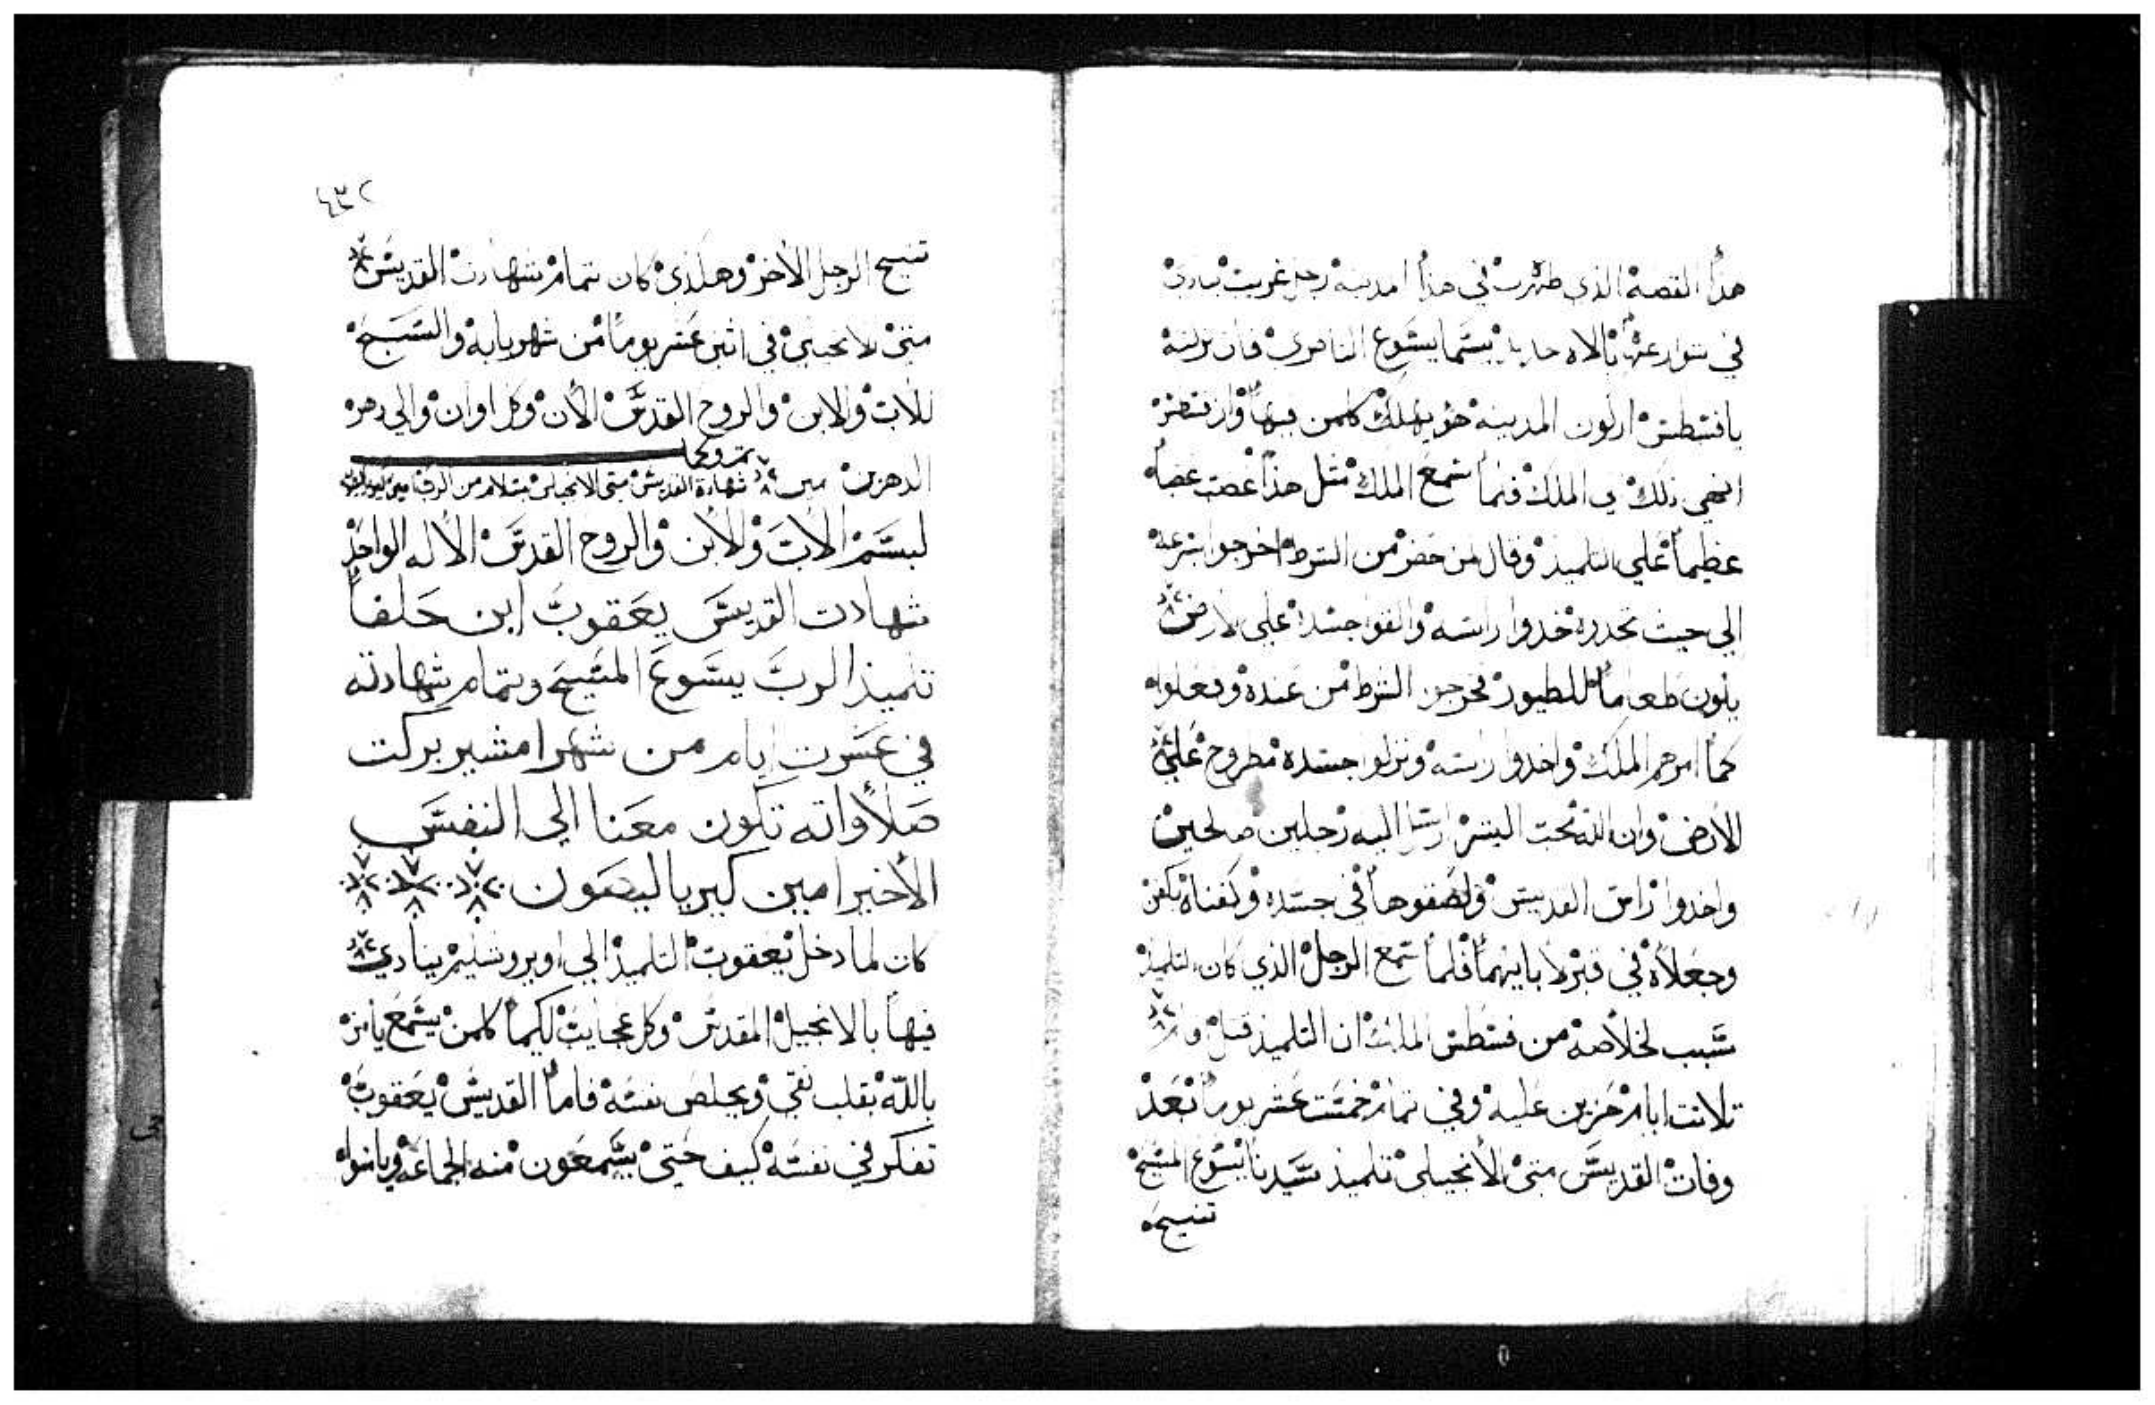 هذا القصة الذي ظهرت في هذا المدينة رجل غريب ينادي
في شوارعها بالاه جديد يسما يشوع الناصري فان تركته
يا فسطس اركون المدينة هو يهلك كلمن فيها وان فسطس
انهي ذلك الي الملك فلما سمع الملك مثل هذا غضب غضباً
عظيماً علي التلميذ وقال لمن حضر من الشرط اخرجوا بسرعة
الي حيث تجدوه خدوا راسه والقوا جسده علي الارض
يكون طعاماً للطيور فخرجو الشرط من عنده وفعلوا
كما امرهم الملك واخدوا راسه وتركوا جسده مطروح علي
الأرض وان الله محب البشر ارسل اليه رجلين صالحين
واخدوا راس القديس ولصقوها في جسده وكفناه بكفن
وجعلاه في قبر لابايهما فلما سمع الرجل الذي كان التلميذ
سبب لخلاصه من فسطس الملك ان التلميذ قتل وقام
تلاتت ايام حزين عليه وفي تمام خمست عشر يوماً بعد
وفات القديس متي الأنجيلي تلميذ سيدنا يسوع المسيح
تنيح
٤٣٢
تنيح الرجل الأخر وهكذي كان تمام شهادت القديس
متي الانجيلي في اثني عشر يوماً من شهر بابه والسبح
للأب والابن والروح القدس الأن وكل اوان والي دهر
الدهرين امين شهادة القديس متي الانجيلي بسلام من الرب امين
لبسم الأب والأبن والروح القدس الأله الواحد
شهادت القديس يعقوب ابن حلفا
تلميذ الرب يسوع المسيح وتمام شهادته
في عشرت ايام من شهر امشير بركت
صلأواته تكون معنا الي النفس
الأخير امين كيرياليصون
كان لما دخل يعقوب التلميذ الي اويروشليم ينادي
فيها بالانجيل المقدس وكل عجايب لكيما كلمن يسمع يامن
بالله بقلب نقي ويخلص نفسه فاما القديس يعقوب
تفكر في نفسه كيف حتي يسمعون منه الجماعة ويامنوا